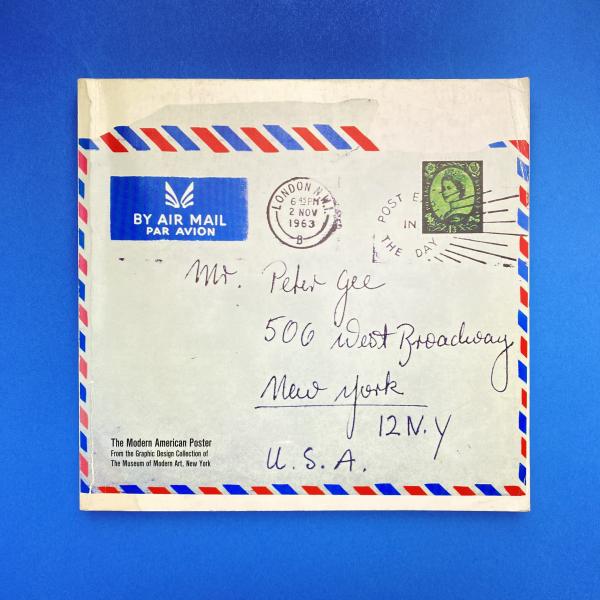 BY AIR MAIL
PAR AVION
LONDON N.W.1.
6 45 PM
2 NOV
1963
B
POST E
IN
THE DAY
Mr. Peter Gee
506 West Broadway
New York
12 N.Y
U.S.A.
The Modern American Poster
From the Graphic Design Collection of
The Museum of Modern Art, New York